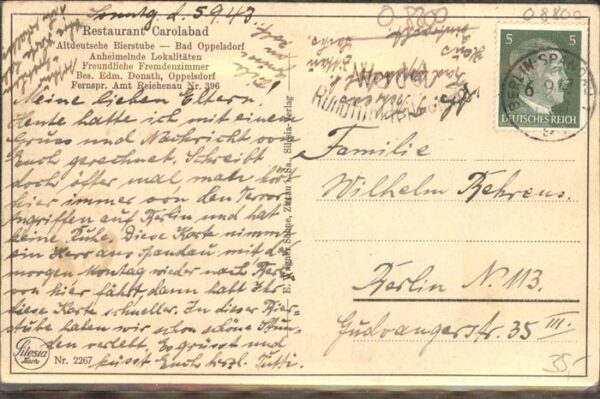 Sonntg d. 5.9.43
Restaurant Carolabad
Altdeutsche Bierstube — Bad Oppelsdorf
Anheimelnde Lokalitäten
Freundliche Fremdenzimmer
Bes. Edm. Donath, Oppelsdorf
Fernspr. Amt Reichenau Nr. 396
Meine lieben Eltern.
Heute hatte ich mit einem
Gruss und Nachricht von
Euch gerechnet. Schreibt
doch öfter mal, man hört
hier immer von den Terror
angriffen auf Berlin und hat
keine Ruhe. Diese Karte nimmt
ein Herr aus Spandau mit der
morgen Montag wieder nach Berlin
von hier fährt dann habt Ihr
diese Karte schneller. In dieser Bier-
stube haben wir schon schöne Stun-
den verlebt. Es grüsst und
küsst Euch herzl.
Silesia
Nr. 2267
E. Wagner Söhne, Zittau i. Sa. Silesia-Verlag
0 8800
0 8800
5 5
DEUTSCHES REICH
BERLIN-SPANDAU 1
Familie
Wilhelm Behrens.
Berlin N. 113.
Gudvangerstr. 35 III.
35,-